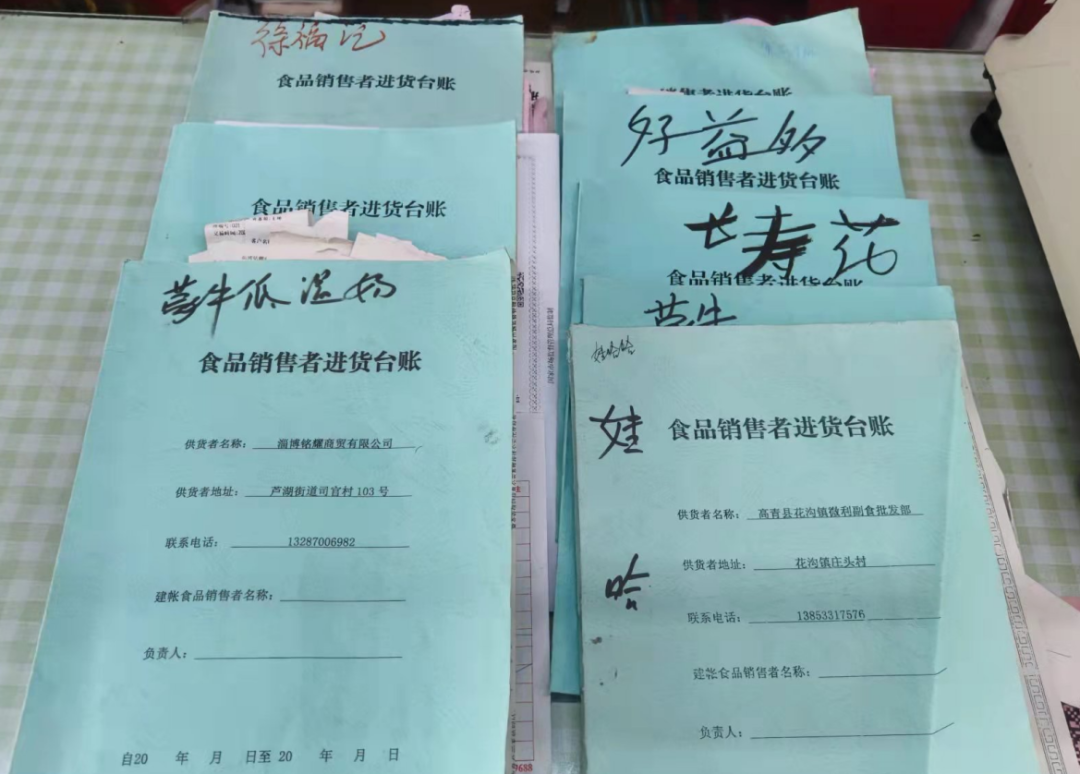 徐福记
食品销售者进货台账
食品销售者进货台账
蒙牛低温奶
食品销售者进货台账
供货者名称： 淄博铭耀商贸有限公司
供货者地址： 芦湖街道司官村 103 号
联系电话： 13287006982
建帐食品销售者名称：
负责人：
自20 年 月 日至 20 年 月 日
销售者进货台账
好益多
食品销售者进货台账
长寿药
食品销售者进货台账
蒙牛
娃哈哈
娃
哈
食品销售者进货台账
供货者名称： 高青县花沟镇微利副食批发部
供货者地址： 花沟镇庄头村
联系电话： 13853317576
建帐食品销售者名称：
负责人：